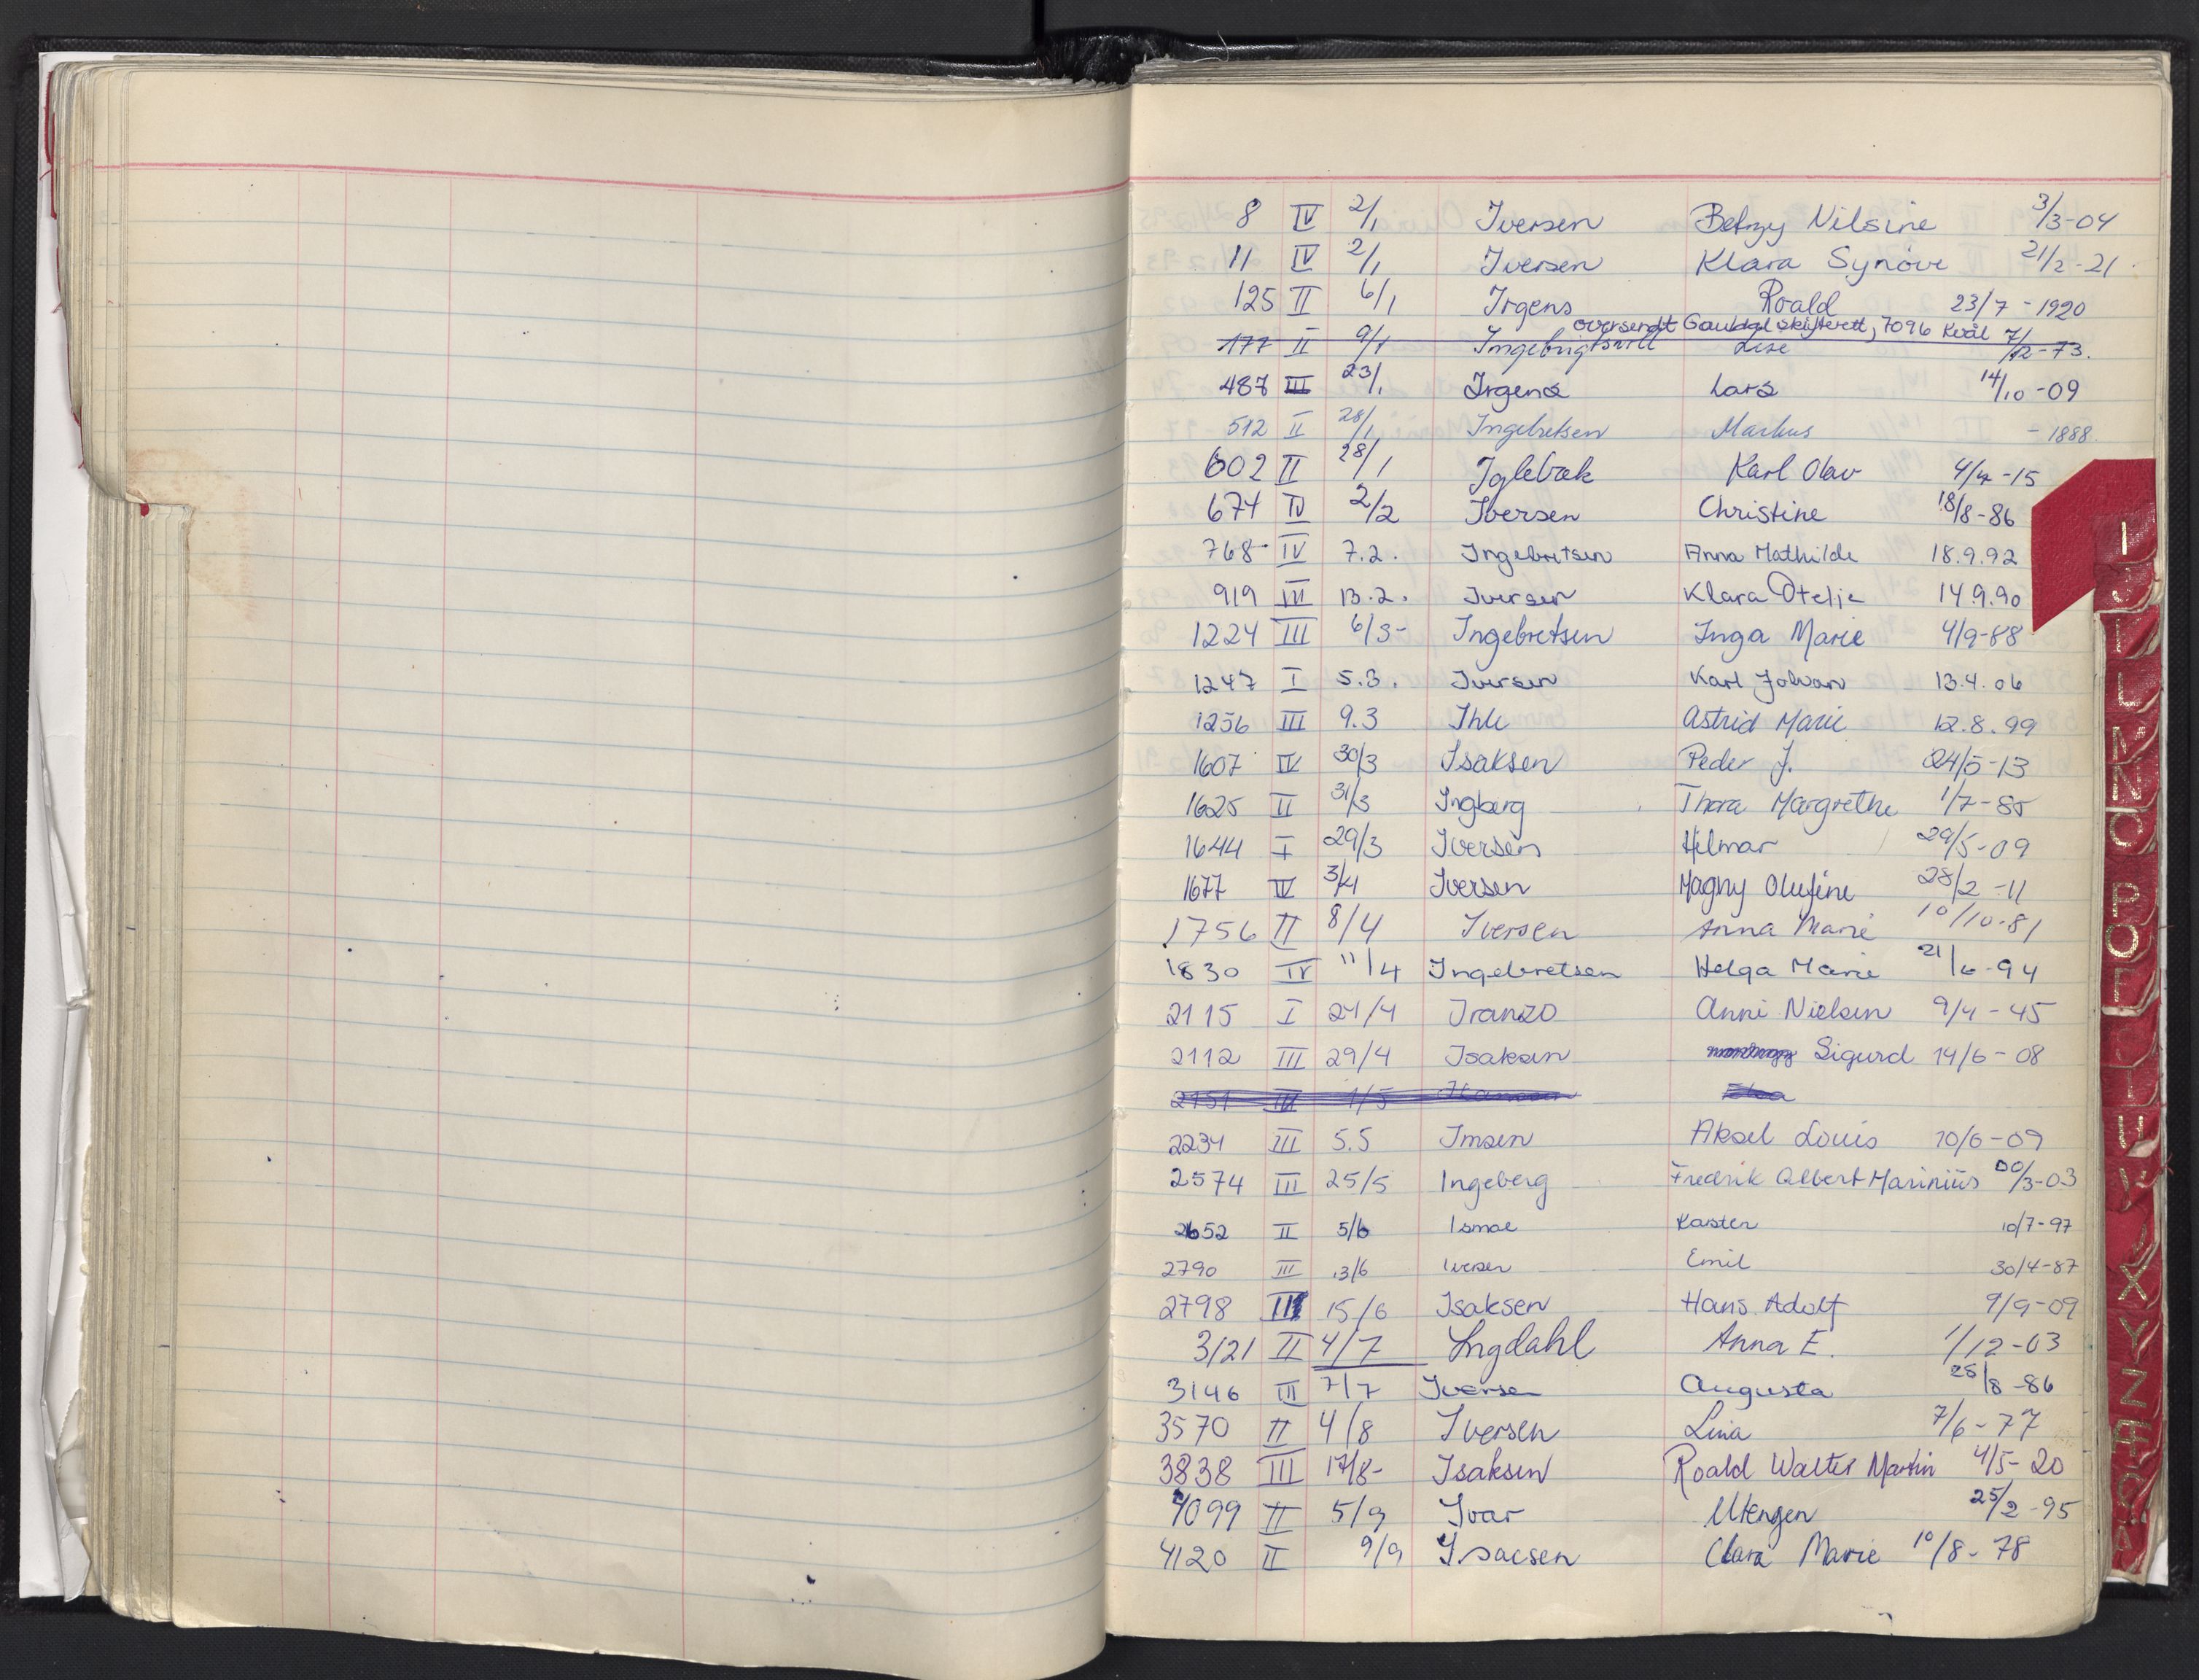 8 IV 2/1 Iversen Betzy Nilsine 3/3-04
11 IV 2/1 Iversen Klara Synöve 21/2-21
125 II 6/1 Irgens Roald 23/7-1920
oversendt Gauldal skifterett, 7096 Kvål 7/12-73.
177 II 9/1 Lise
487 III 23/1 Irgens Lars 14/10-09
512 II 28/1 Ingebretsen Markus -1888
602 II 28/1 Iglebæk Karl Olav 4/4-15
674 IV 2/2 Iversen Christine 18/8-86
768 IV 7.2. Ingebretsen Anna Mathilde 18.9.92
919 III 13.2. Iversen Klara Otelie 14.9.90
1224 III 6/3- Ingebretsen Inga Marie 4/9-88
1247 I 5.3. Iversen Karl Johan 13.4.06
1256 III 9.3 Ihle Astrid Marie 12.8.99
1607 IV 30/3 Isaksen Peder J. 24/5-13
1625 II 31/3 Ingberg Thora Margrethe 1/7-85
1644 I 29/3 Iversen Hilmar 29/5-09
1677 IV 3/4 Iversen Magny Olufine 28/2-11
1756 II 8/4 Iversen Anna Marie 10/10-81
1830 IV 11/4 Ingebretsen Helga Marie 21/6-94
2115 I 24/4 Iranzo Anni Nielsen 9/4-45
2112 III 29/4 Isaksen Sigurd 14/6-08
2151 III 1/5
2234 III 5.5 Imsen Aksel Louis 10/6-09
2574 III 25/5 Ingeberg Fredrik Albert Marinius /3-03
2652 II 5/6 Ismae Karsten 10/7-97
2790 III 13/6 Iversen Emil 30/4-87
2798 III 15/6 Isaksen Hans Adolf 9/9-09
3121 II 4/7 Ingdahl Anna E. 1/12-03
3146 III 7/7 Iversen Augusta 25/8-86
3570 II 4/8 Iversen Lina 7/6-77
3838 III 17/8- Isaksen Roald Walter Martin 4/5-20
4099 II 5/9 Ivar Utengen 25/2-95
4120 II 9/9 Isacsen Clara Marie 10/8-78